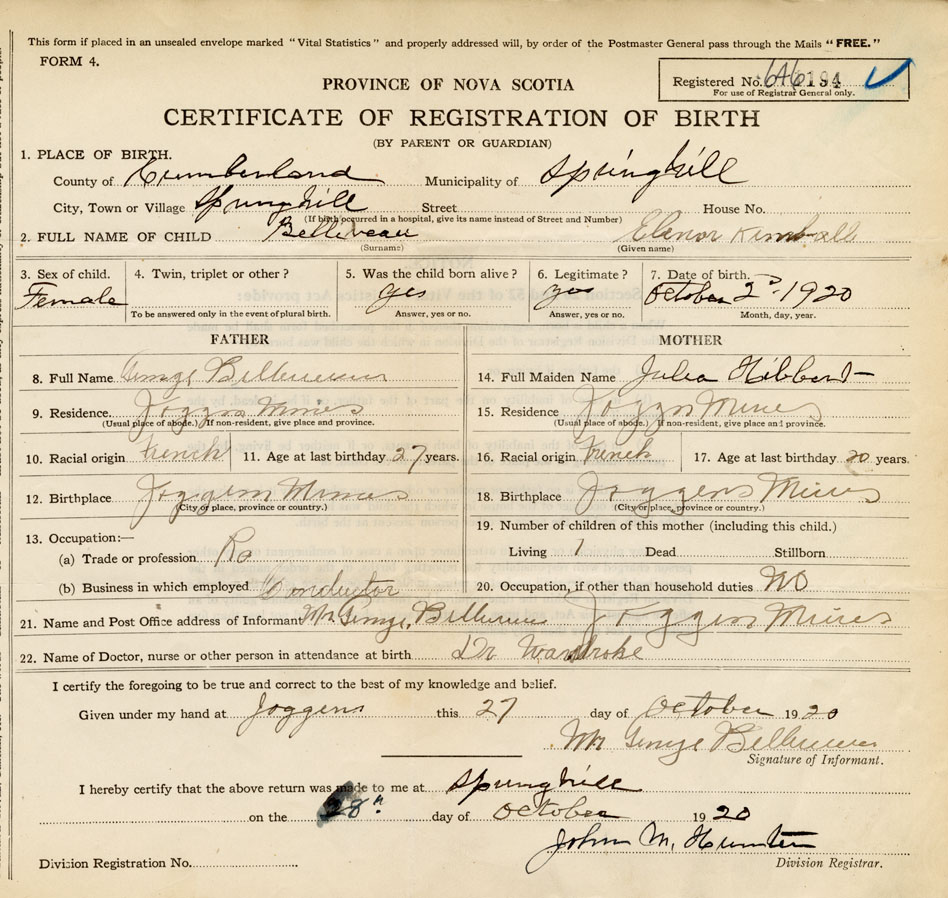 This form if placed in an unsealed envelope marked "Vital Statistics" and properly addressed will, by order of the Postmaster General pass through the Mails "FREE."
FORM 4.
PROVINCE OF NOVA SCOTIA
Registered No. 194
For use of Registrar General only.
CERTIFICATE OF REGISTRATION OF BIRTH
(BY PARENT OR GUARDIAN)
1. PLACE OF BIRTH.
County of Cumberland Municipality of Springhill
City, Town or Village Springhill Street House No.
(If birth occurred in a hospital, give its name instead of Street and Number)
2. FULL NAME OF CHILD Belliveau Elenor Kimball
(Surname) (Given name)
3. Sex of child. 4. Twin, triplet or other? 5. Was the child born alive? 6. Legitimate? 7. Date of birth.
Female yes yes October 2 1920
To be answered only in the event of plural birth. Answer, yes or no. Answer, yes or no. Month, day, year.
FATHER MOTHER
8. Full Name George 14. Full Maiden Name Julia Hibbert
9. Residence. Joggins Mines 15. Residence Joggins Mines
(Usual place of abode.) If non-resident, give place and province. (Usual place of abode.) If non-resident, give place and province.
10. Racial origin French 11. Age at last birthday 27 years. 16. Racial origin French 17. Age at last birthday 20 years.
12. Birthplace Joggins Mines 18. Birthplace Joggens Mines
(City or place, province or country.) (City or place, province or country.)
19. Number of children of this mother (including this child.)
13. Occupation:—
Living 1 Dead Stillborn
(a) Trade or profession Ro
(b) Business in which employed Conductor 20. Occupation, if other than household duties NO
21. Name and Post Office address of Informant Mr. George Joggins Mines
22. Name of Doctor, nurse or other person in attendance at birth Dr
I certify the foregoing to be true and correct to the best of my knowledge and belief.
Given under my hand at Joggens this 27 day of October 1920
Mr George
Signature of Informant.
I hereby certify that the above return was made to me at Springhill
on the 28th day of October 1920
John M. Hunter
Division Registration No. Division Registrar.